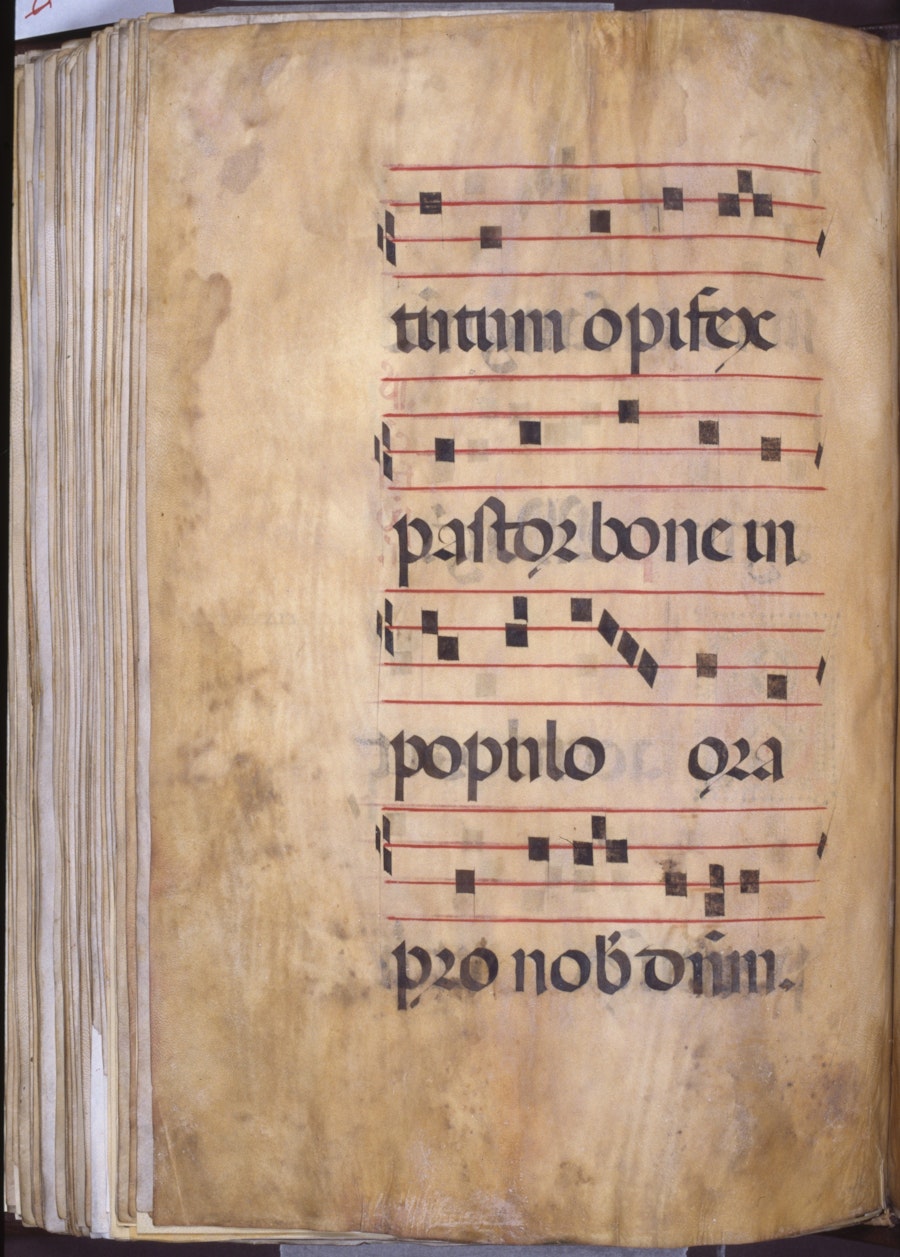 tutum opifex
pastor bone in
populo ora
pro nob' dn̄m.